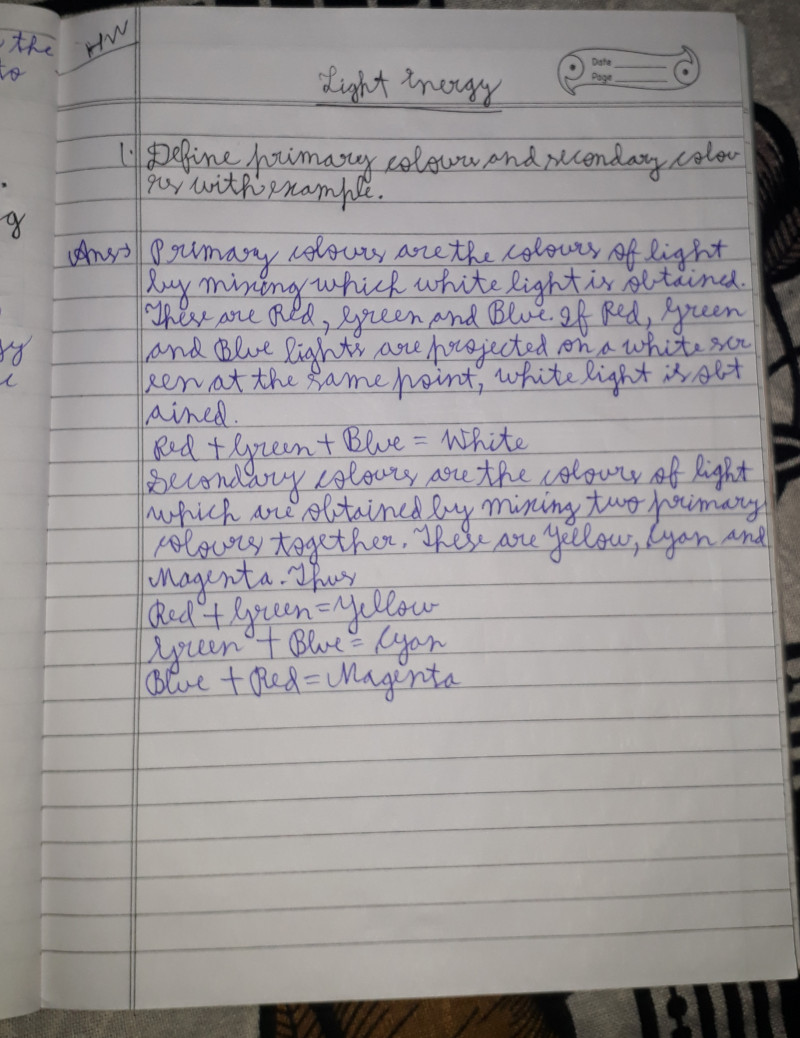 the
to
g
HW
Date
Page
Light Energy
1. Define primary colours and secondary colou
rs with example.
Ans→ Primary colours are the colours of light
by mixing which white light is obtained.
These are Red, Green and Blue. If Red, Green
and Blue lights are projected on a white scr
een at the same point, white light is obt
ained.
Red + Green + Blue = White
Secondary colours are the colours of light
which are obtained by mixing two primary
colours together. These are Yellow, Cyan and
Magenta. Thus
Red + Green = Yellow
Green + Blue = Cyan
Blue + Red = Magenta